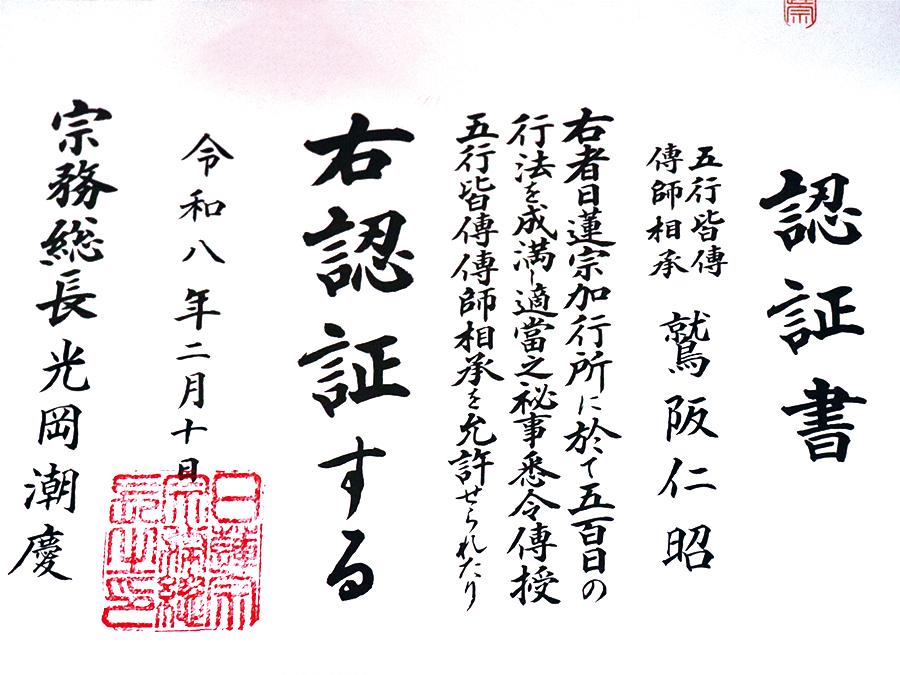 認証書
五行皆傳
傳師相承
鷲阪仁昭
右者日蓮宗加行所に於て五百日の
行法を成満し適當之祕事悉令傳授
五行皆傳傳師相承を允許せられたり
右認証する
令和八年二月十日
日蓮宗
宗務総
長之印
宗務総長 光岡潮慶